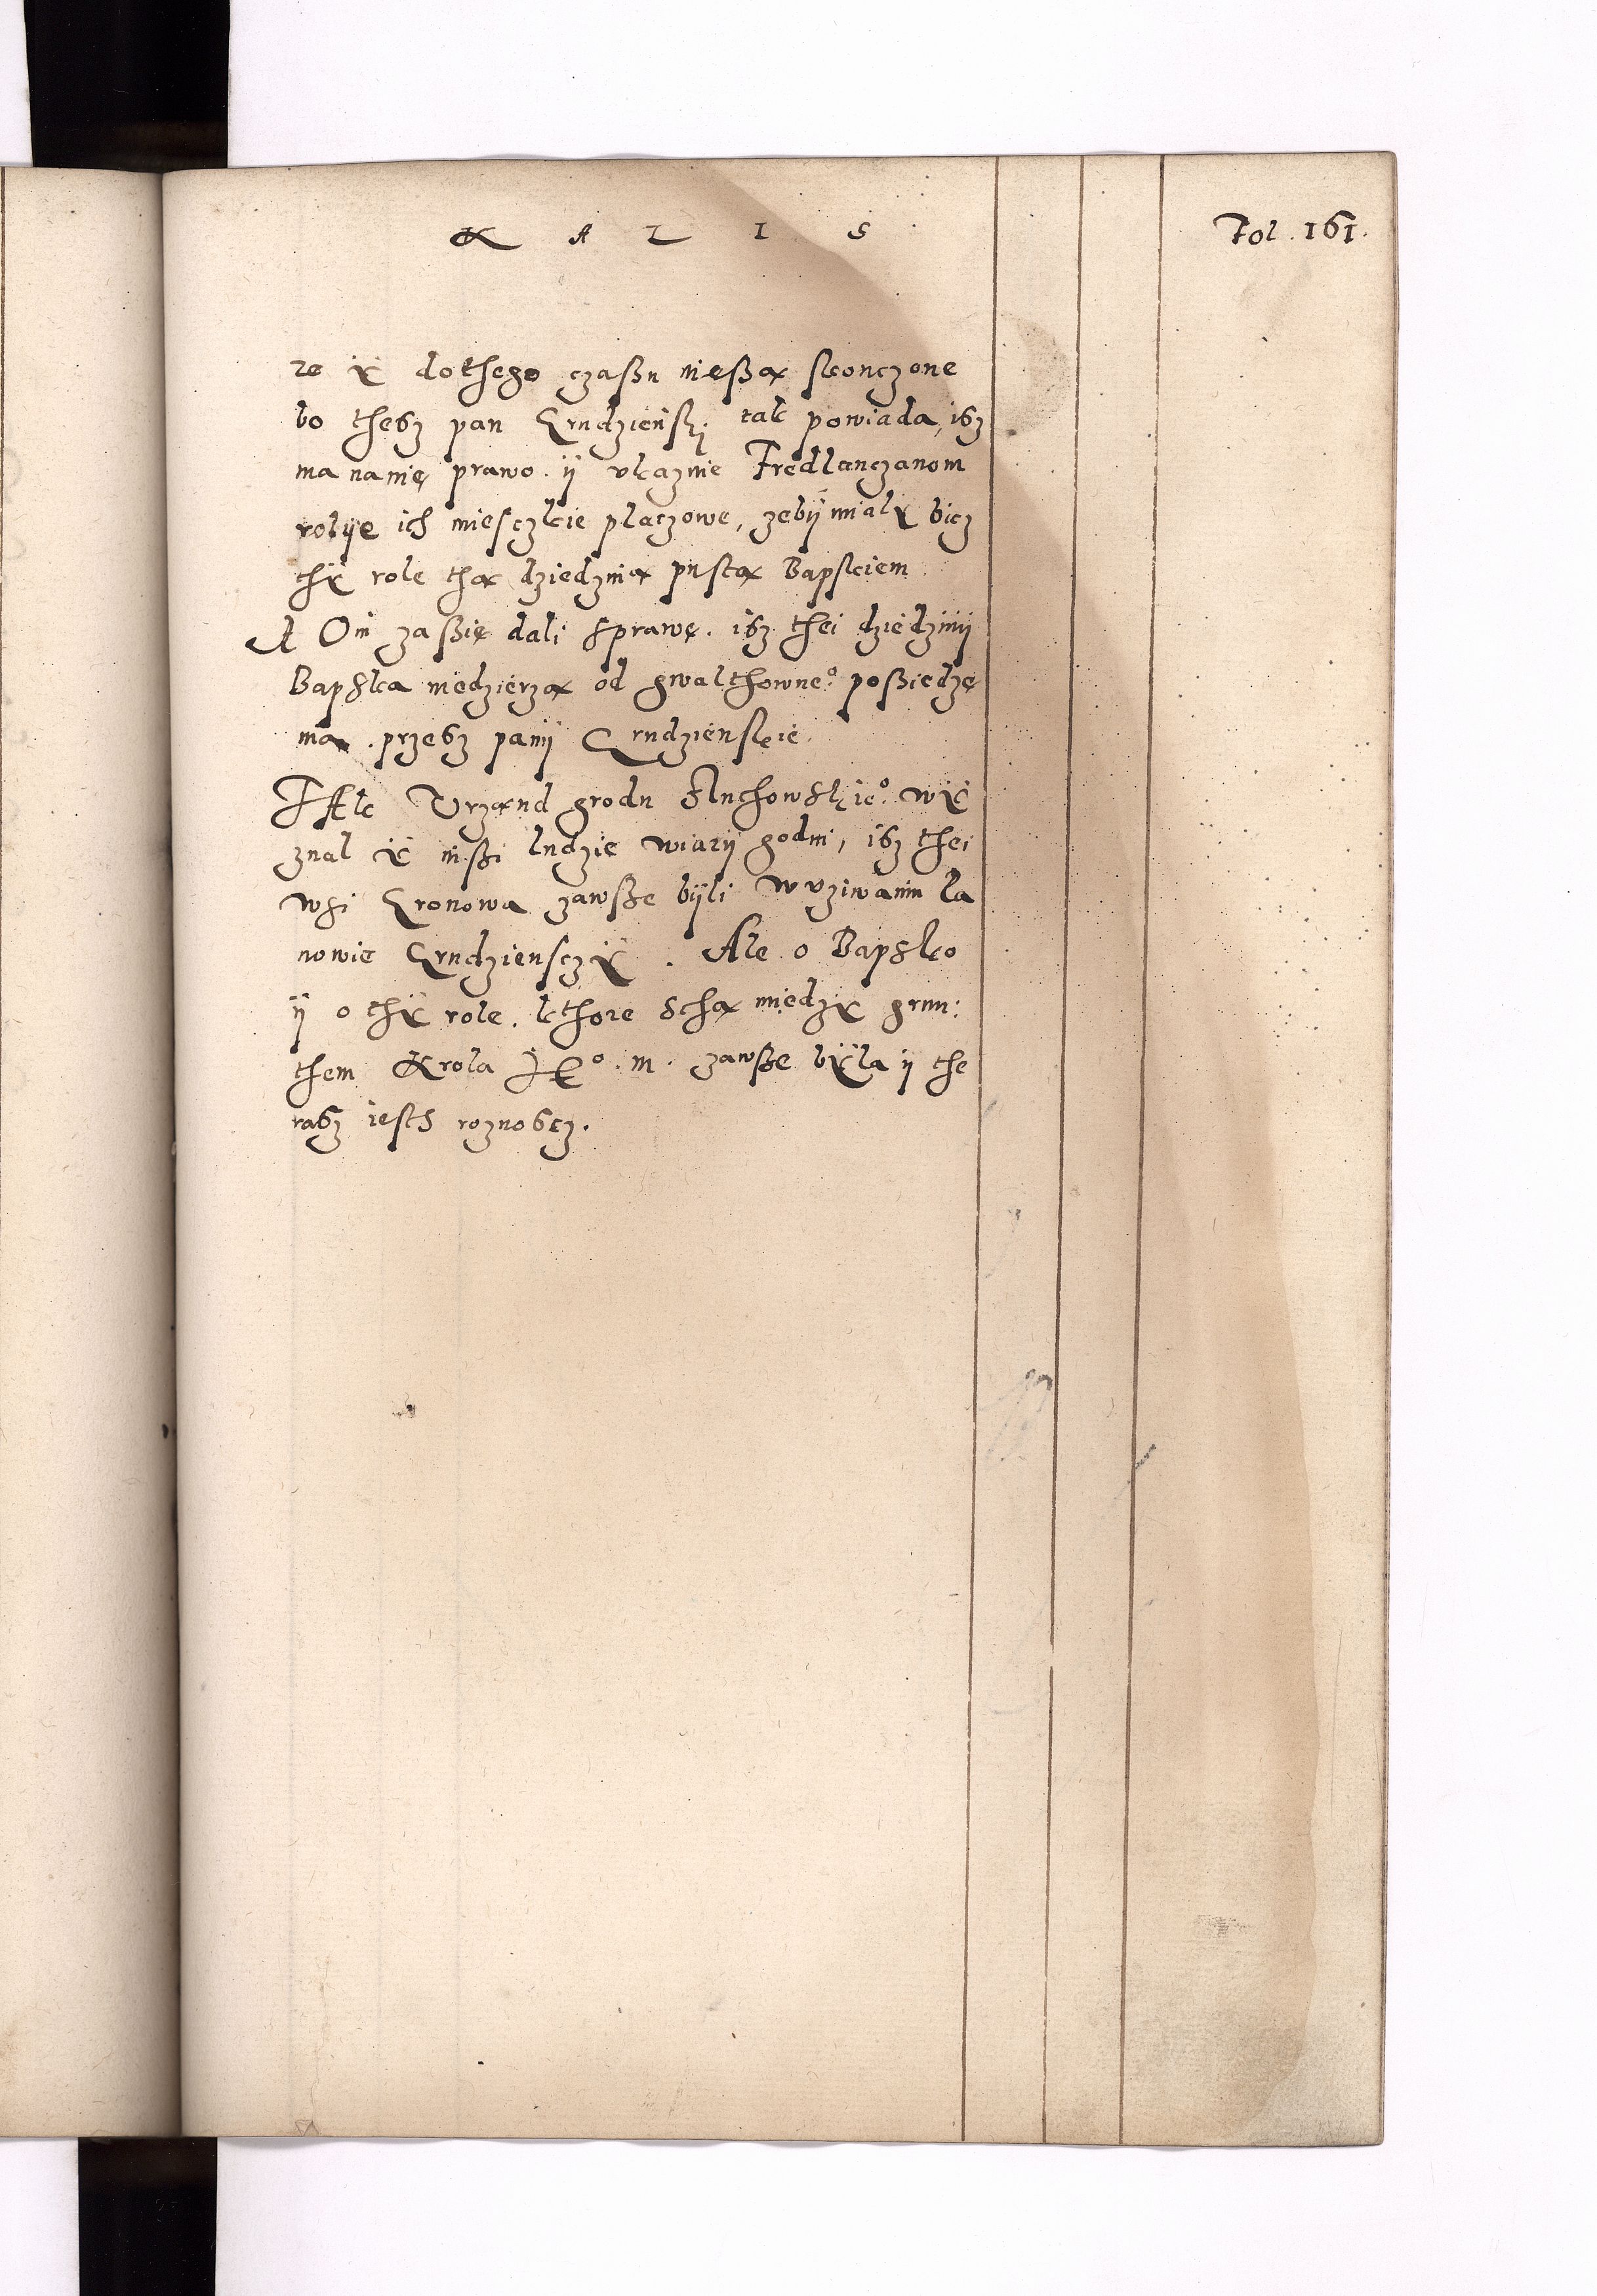 KALIS
Fol. 161.
re ÿ dothego czaßu nießą skonczone
bo theßz pan Grudzieński tak powiada, ißz
ma na nię prawo. ij vkaznie Fredlanczanom
rolije ich miesczkie płaczowe, zebÿ miałÿ bicz
thÿ role thą dziedzinią pustą Bapskiem
A Oni zaßię dali sprawę. ißz thei dziedzinij
Bapska niedzierzą od gwalthowne°. poßiedze
nia. przeßz panij Grudzienskie.
TAk Vrzand grodu Człuchowskie°. wÿ
znal ÿ inßi ludzie wiarij godni, ißz thei
wsi Gronowa zawße bÿli w vziwaniu Pa
nowie Grudziensczÿ. Ale o Bapsko
ij o thÿ role. kthore sthą miedzÿ grun:
them Krola Je°. m. zawße bÿla ij the
raßz iesth roznoßcz.